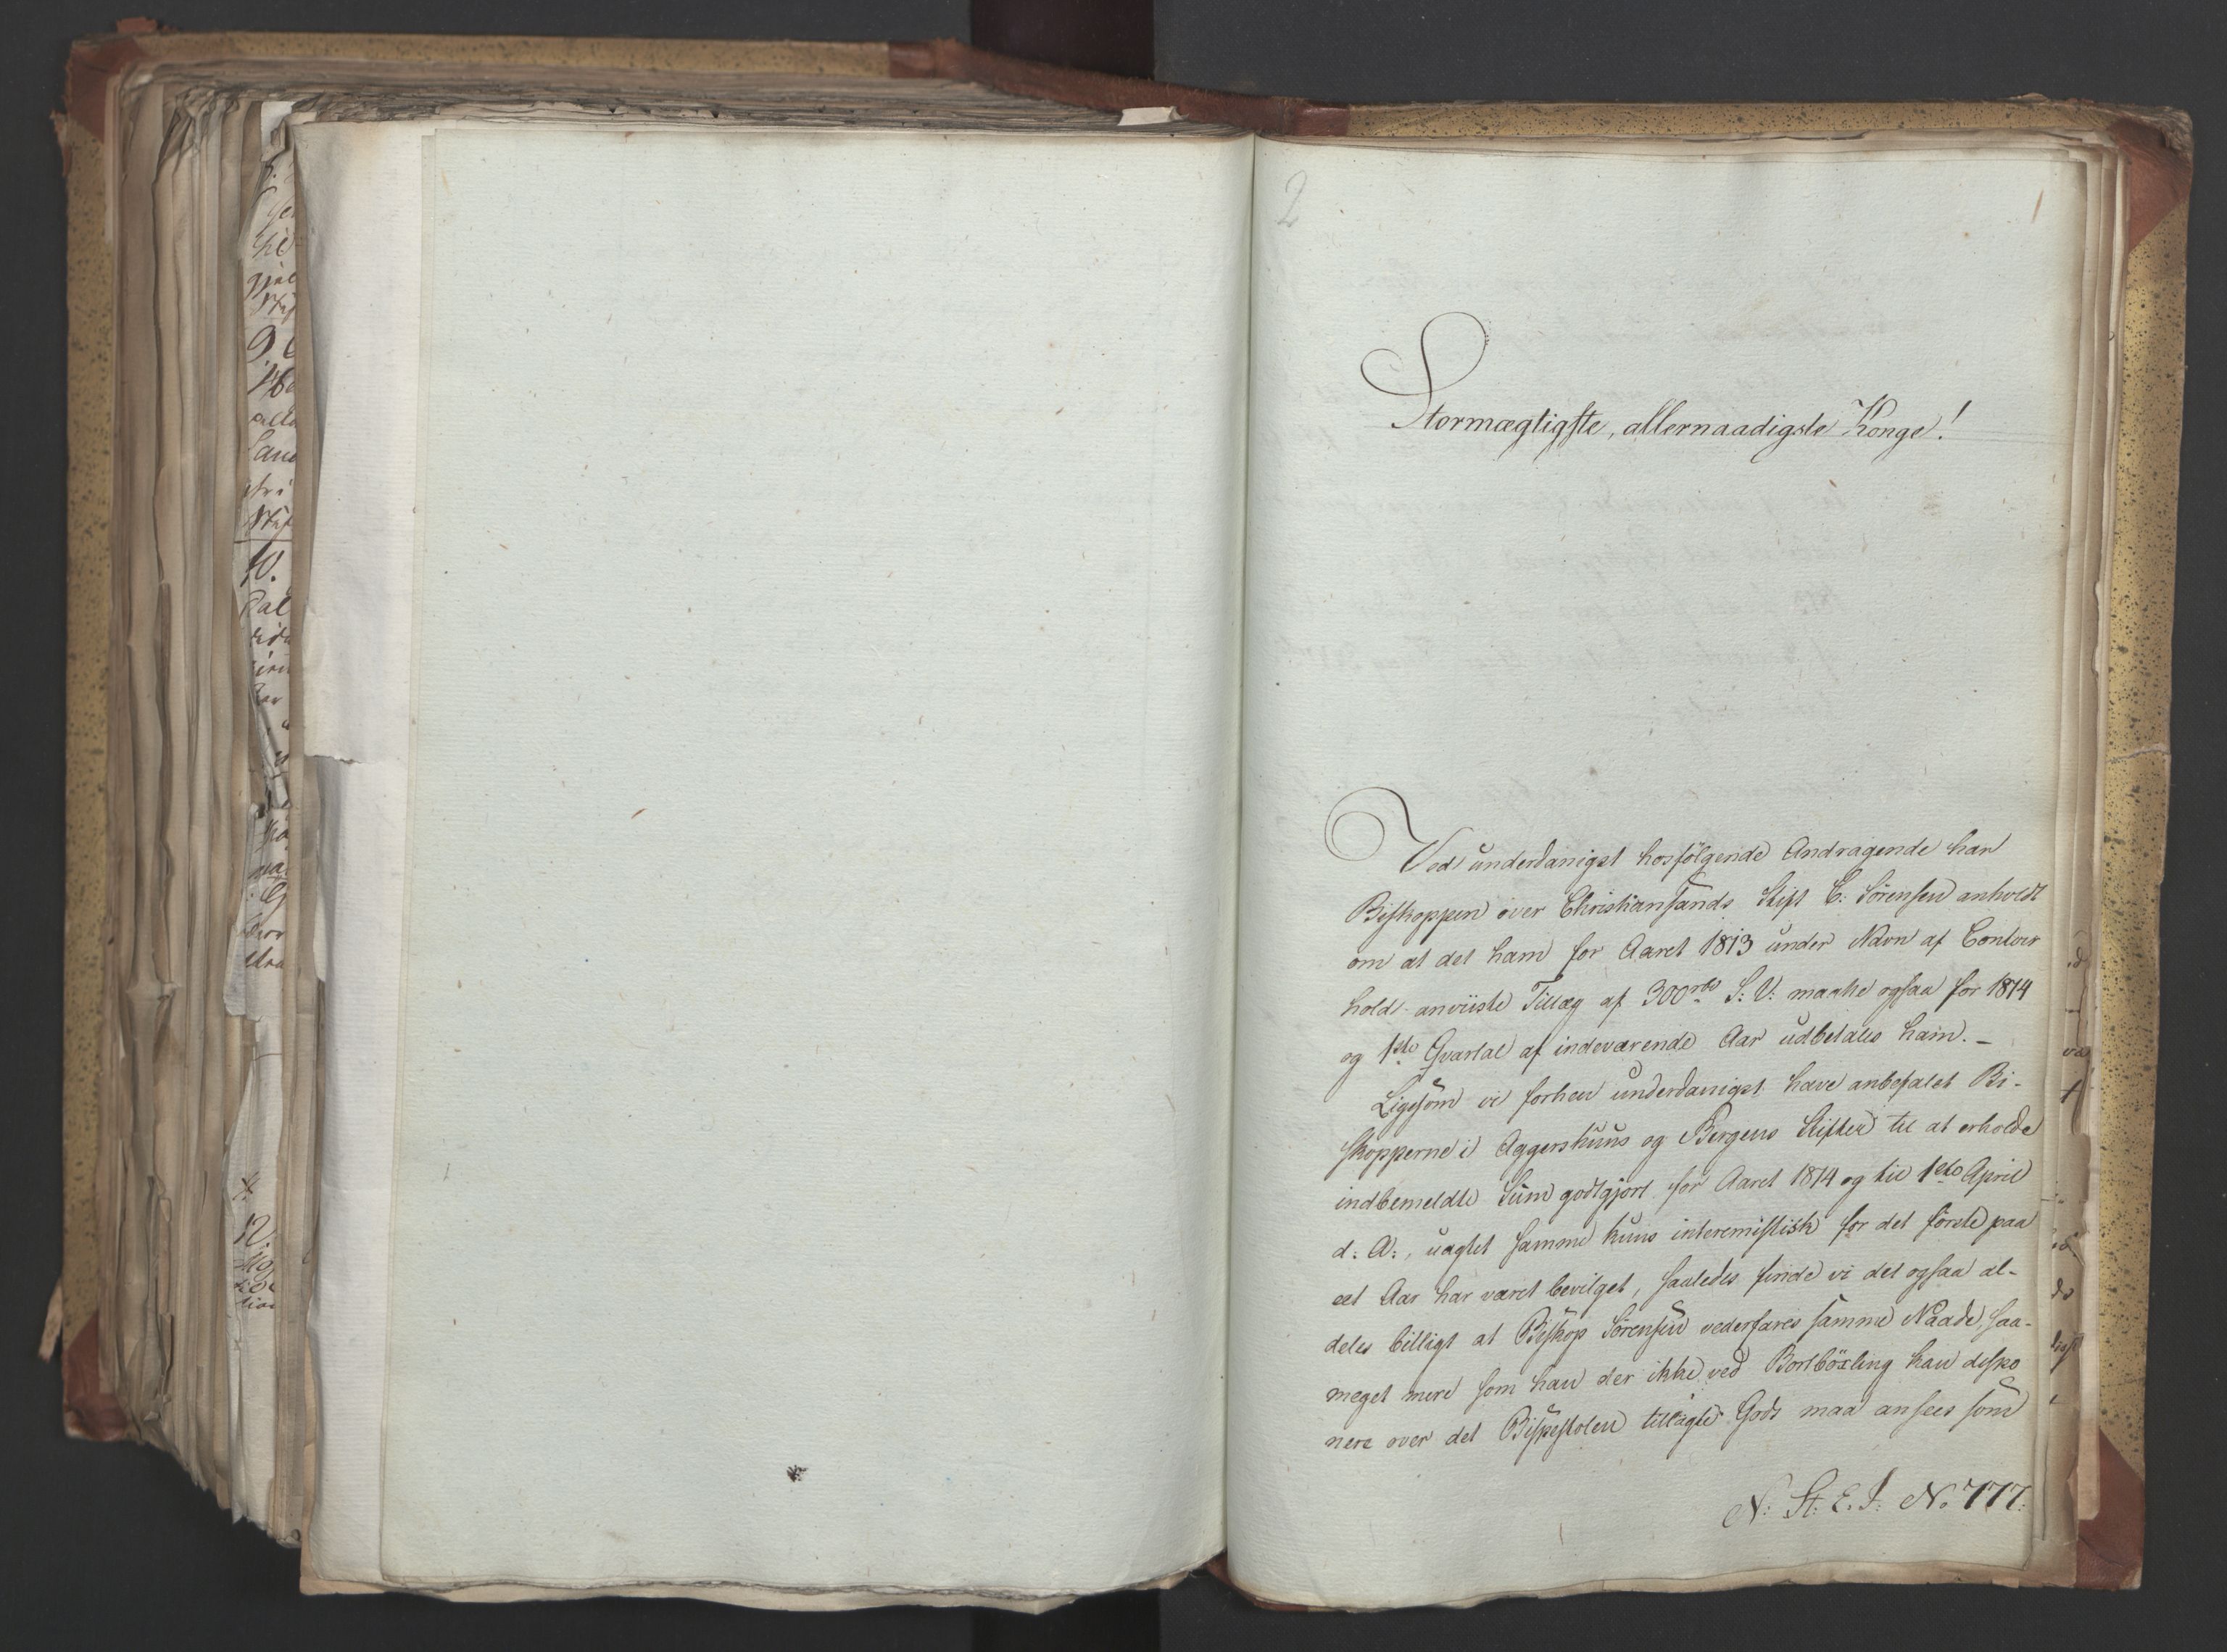 2
Stormægtigste, allernaadigste Konge!
Ved underdanigst hosfölgende Andragende har
Biskoppen over Christiansands Stift C: Sörensen anholdt
om at det ham for Aaret 1813 under Navn af Contoir
hold anviiste Tillæg af 300 rbd S: V: maatte ogsaa for 1814
og 1ste Qvartal af indeværende Aar udbetales ham. –
Ligesom vi forhen underdanigst have anbefalet Bi-
skopperne i Aggershuus og Bergens Stifter til at erholde
indbemeldte Sum godtgjort for Aaret 1814 og til 1ste April
d: A:, uagtet samme kuns interemistisk for det förste paa
eet Aar har været bevilget, saaledes finde vi det ogsaa al-
deles billigt at Biskop Sörensen vederfares samme Naade, saa-
meget mere som han der ikke ved Bortböxling kan dispo
nere over det Bispestolen tillagte Gods maa ansees som
N: St: E. I: No 777: